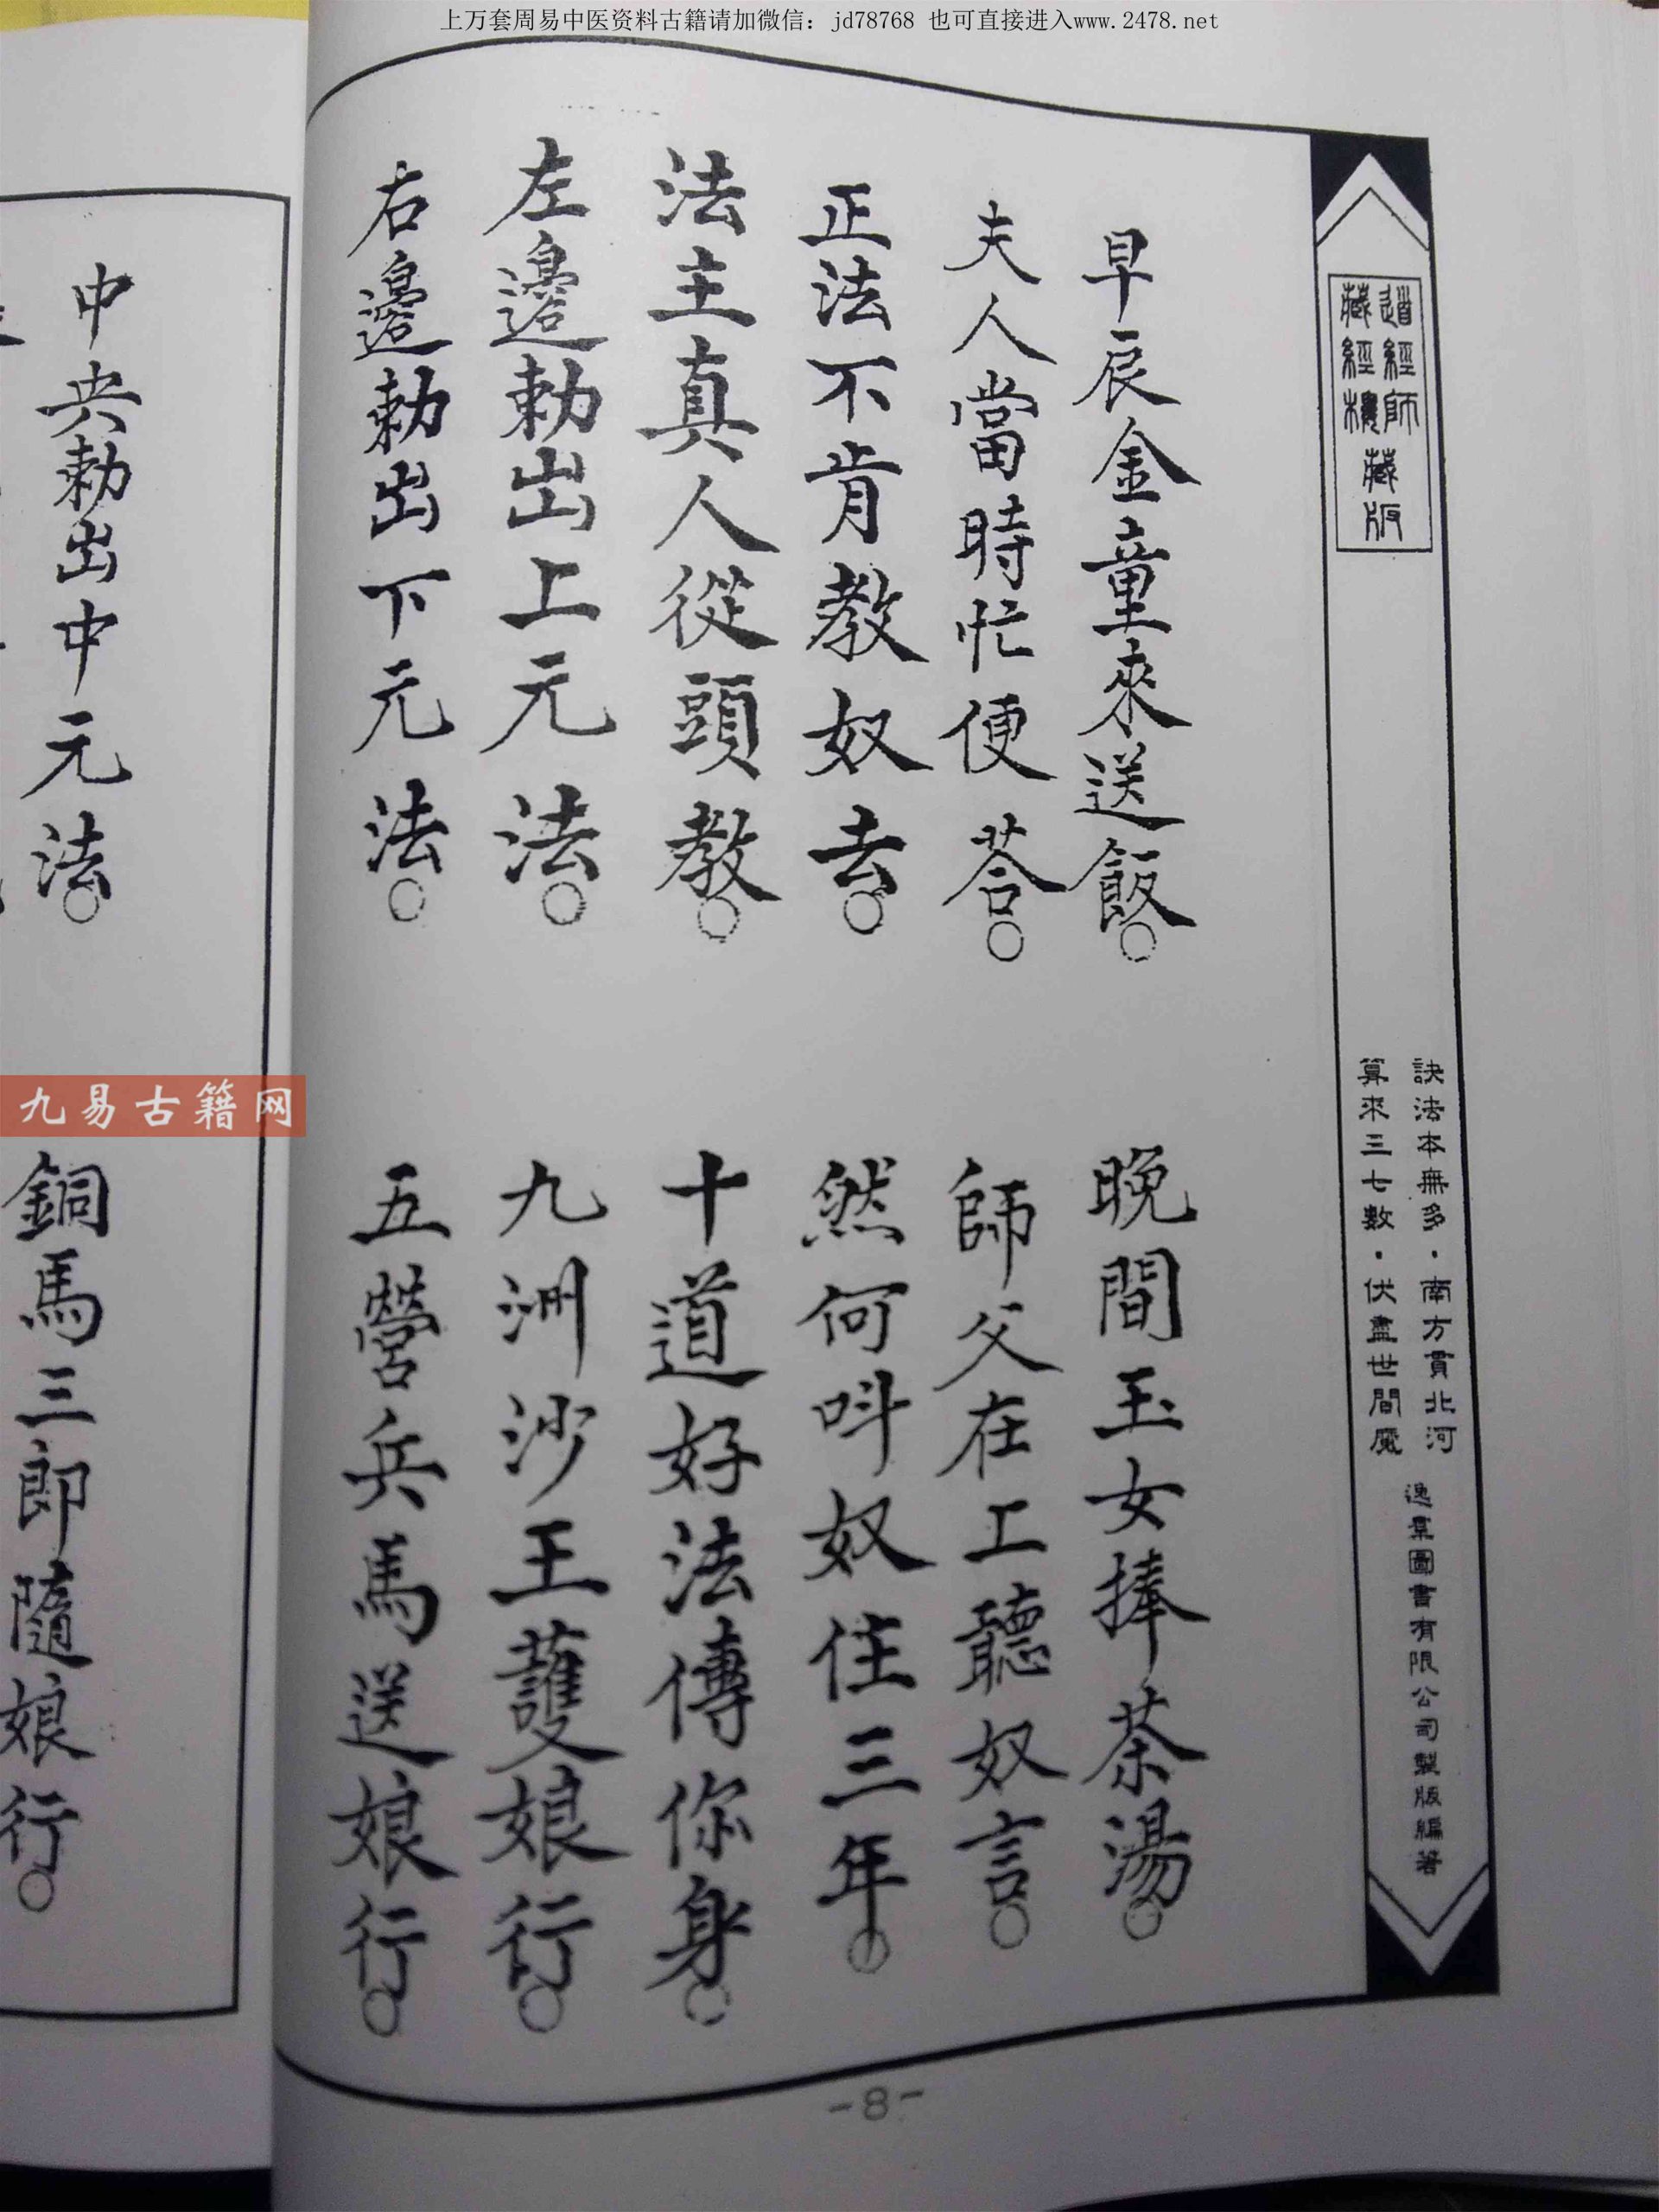 上万套周易中医资料古籍请加微信：jd78768 也可直接进入www.2478.net
道經師
藏經樓
藏版
訣法本無多・南方貫北河
算來三七數・伏盡世間魔
逸羣圖書有限公司製版編著
早辰金童來送飯○
晚間玉女捧茶湯○
夫人當時忙便荅○
師父在上聽奴言○
正法不肯教奴去○
然何呌奴住三年○
法主真人從頭教○
十道好法傳你身○
左邊勅出上元法○
九洲沙王護娘行○
右邊勅出下元法○
五營兵馬送娘行○
-8-
中央勅出中元法○
銅馬三郎隨娘行○
九易古籍网